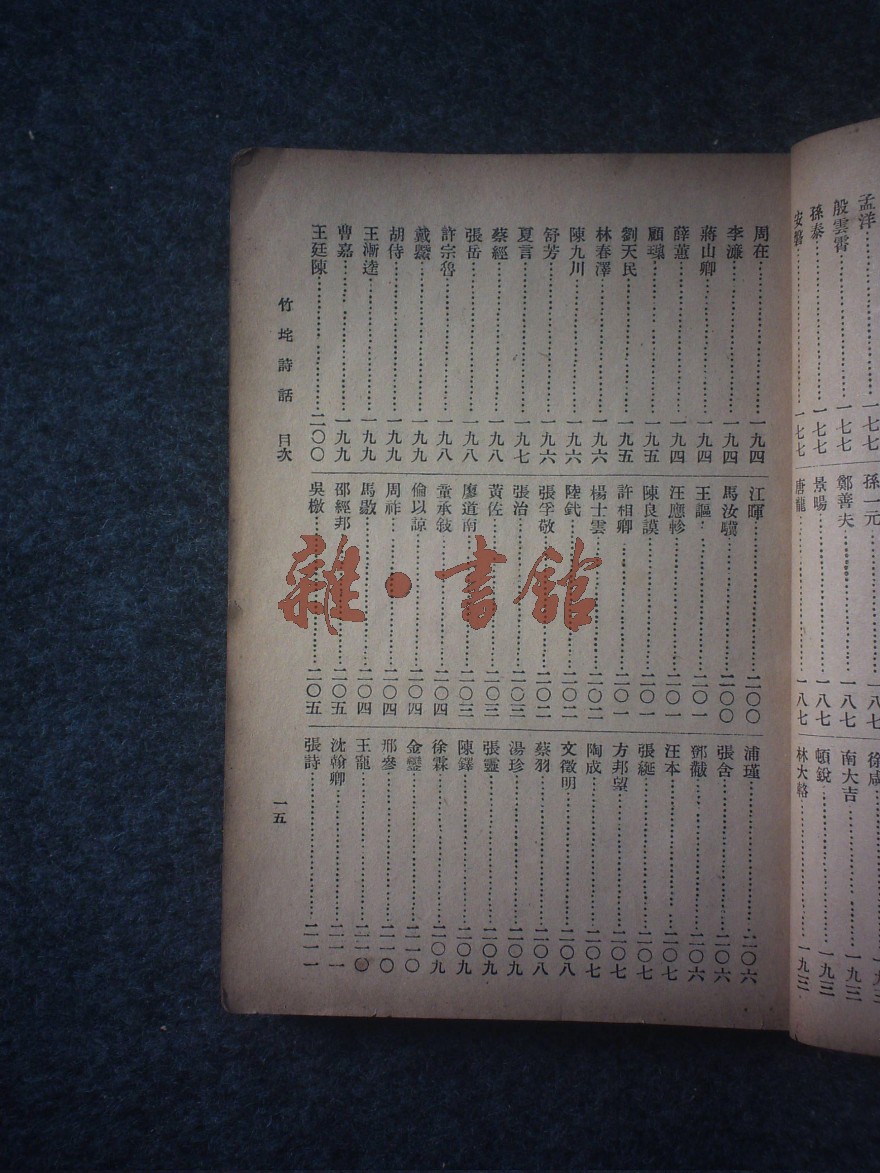 孟洋⋯⋯一七七
殷雲霄⋯⋯一七七
孫泰⋯⋯一七七
安磐⋯⋯一七七
孫一元⋯⋯一八七
鄭善夫⋯⋯一八七
景暘⋯⋯一八七
唐龍⋯⋯一八七
徐咸⋯⋯一九三
南大吉⋯⋯一九三
頓銳⋯⋯一九三
林大輅⋯⋯一九三
周在⋯⋯一九四
李濂⋯⋯一九四
蔣山卿⋯⋯一九四
薛蕙⋯⋯一九四
顧璘⋯⋯一九五
劉天民⋯⋯一九五
林春澤⋯⋯一九六
陳九川⋯⋯一九六
舒芳⋯⋯一九六
夏言⋯⋯一九七
蔡經⋯⋯一九八
張岳⋯⋯一九八
許宗魯⋯⋯一九八
戴鱀⋯⋯一九九
胡侍⋯⋯一九九
王漸逵⋯⋯一九九
曹嘉⋯⋯一九九
王廷陳⋯⋯二〇〇
江暉⋯⋯二〇〇
馬汝驥⋯⋯二〇〇
王謳⋯⋯二〇一
汪應軫⋯⋯二〇一
陳良謨⋯⋯二〇一
許相卿⋯⋯二〇一
楊士雲⋯⋯二〇二
陸釴⋯⋯二〇二
張孚敬⋯⋯二〇二
張治⋯⋯二〇三
黃佐⋯⋯二〇三
廖道南⋯⋯二〇三
童承敍⋯⋯二〇四
倫以諒⋯⋯二〇四
周祚⋯⋯二〇四
馬敭⋯⋯二〇四
邵經邦⋯⋯二〇五
吳檄⋯⋯二〇五
浦瑾⋯⋯二〇六
張含⋯⋯二〇六
鄧韍⋯⋯二〇六
汪本⋯⋯二〇七
張綖⋯⋯二〇七
方邦望⋯⋯二〇七
陶成⋯⋯二〇七
文徵明⋯⋯二〇八
蔡羽⋯⋯二〇八
湯珍⋯⋯二〇九
張靈⋯⋯二〇九
陳鐸⋯⋯二〇九
徐霖⋯⋯二〇九
金鑾⋯⋯二一〇
邢參⋯⋯二一〇
王寵⋯⋯二一〇
沈翰卿⋯⋯二一一
張詩⋯⋯二一一
竹垞詩話 目次
一五
雜·書館